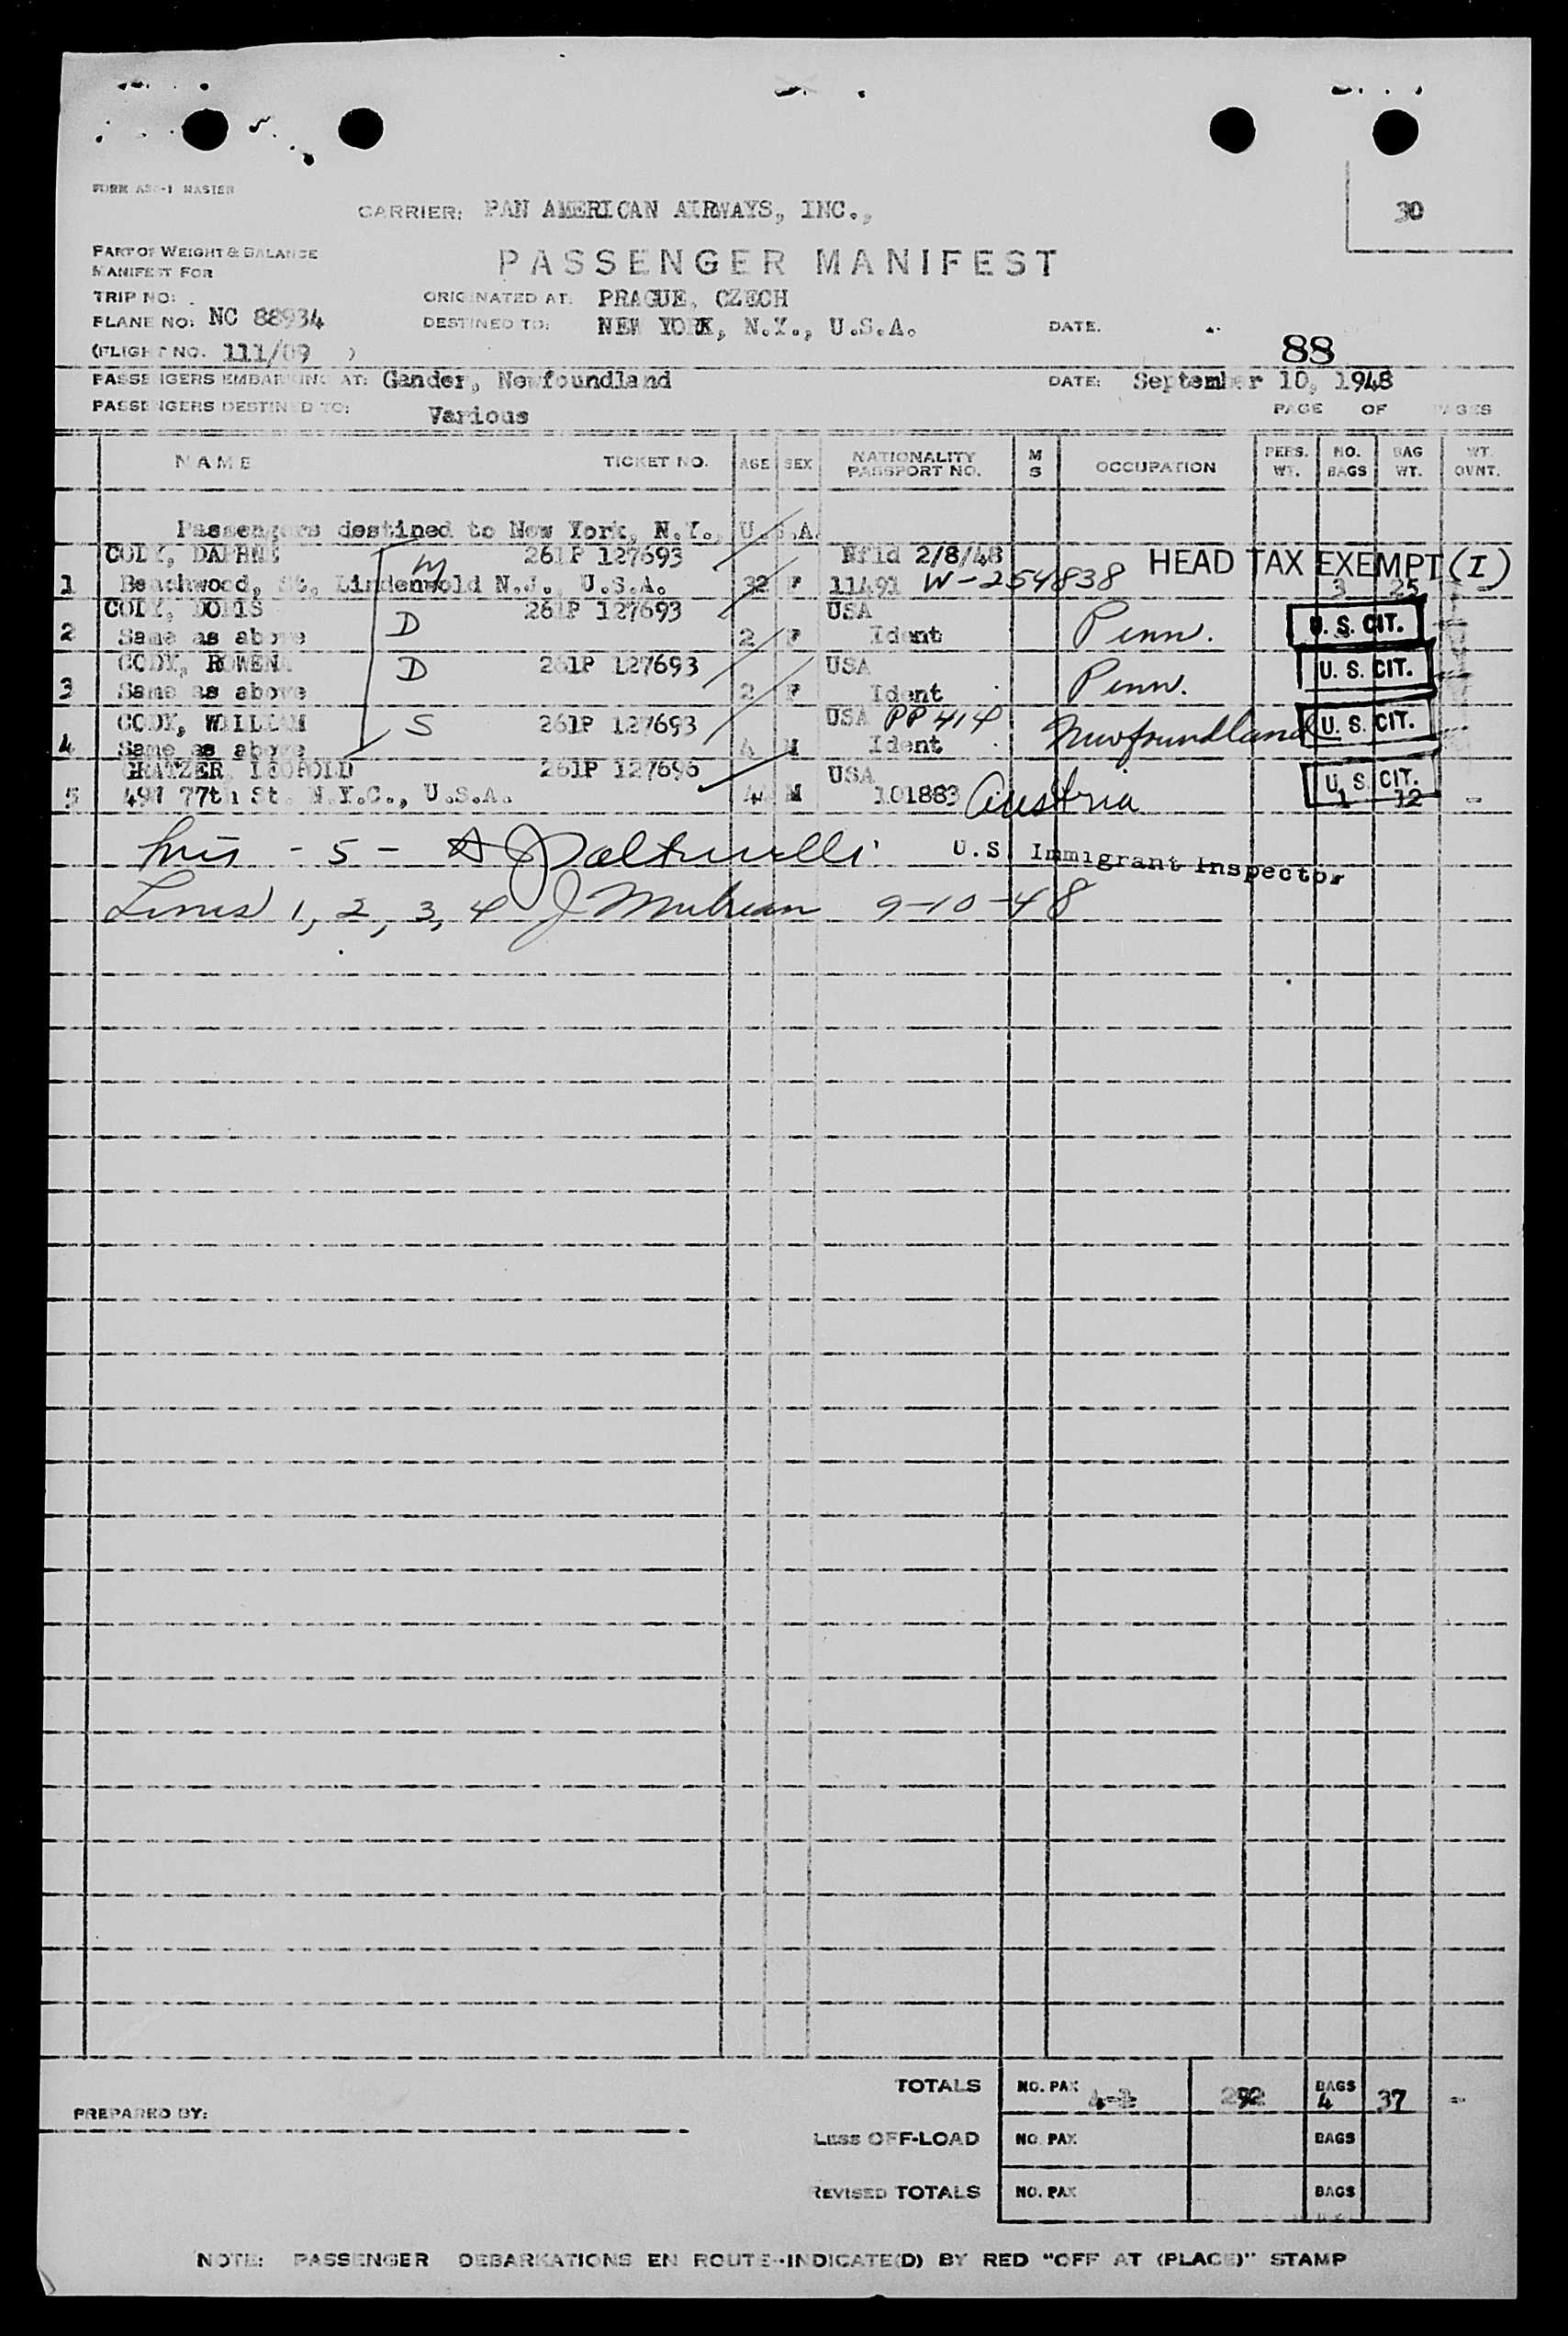 FORM ASC-1 MASTER
CARRIER: PAN AMERICAN AIRWAYS, INC.,
30
PART OF WEIGHT & BALANCE
MANIFEST FOR
PASSENGER MANIFEST
TRIP NO:
ORIGINATED AT: PRAGUE, CZECH
PLANE NO: NC 88934
DESTINED TO: NEW YORK, N.Y., U.S.A.
DATE.
(FLIGHT NO. 111/09 )
88
PASSENGERS EMBARKING AT: Gander, Newfoundland
DATE: September 10, 1948
PASSENGERS DESTINED TO: Various
PAGE OF PAGES
NAME TICKET NO. AGE SEX NATIONALITY PASSPORT NO. M S OCCUPATION PERS. WT. NO. BAGS BAG WT. WT. OVNT.
Passengers destined to New York, N.Y., U.S.A.
CODY, DAPHNE M 261P 127693 Nfld 2/8/48 HEAD TAX EXEMPT (I)
1 Beachwood, St. Lindenwold N.J. U.S.A. 32 F 11491 W-254838 3 25 -
CODY, DORIS 261P 127693 USA
2 Same as above D 2 F Ident Penn. U. S. CIT.
CODY, ROWENA D 261P 127693 USA
3 Same as above 2 F Ident Penn. U. S. CIT.
CODY, WILLIAM S 261P 127693 USA PP 414
4 Same as above 4 M Ident Newfoundland U. S. CIT.
GRATZER, LEOPOLD 261P 127696 USA
5 49W 77th St. N.Y.C., U.S.A. M 101883 Austria U. S. CIT. 1 12 -
- 5 - U.S. Immigrant Inspector
Lines 1, 2, 3, 4 9-10-48
TOTALS NO. PAX BAGS 4 37 -
PREPARED BY:
LESS OFF-LOAD NO. PAX BAGS
REVISED TOTALS NO. PAX BAGS
NOTE: PASSENGER DEBARKATIONS EN ROUTE--INDICATE(D) BY RED "OFF AT (PLACE)" STAMP